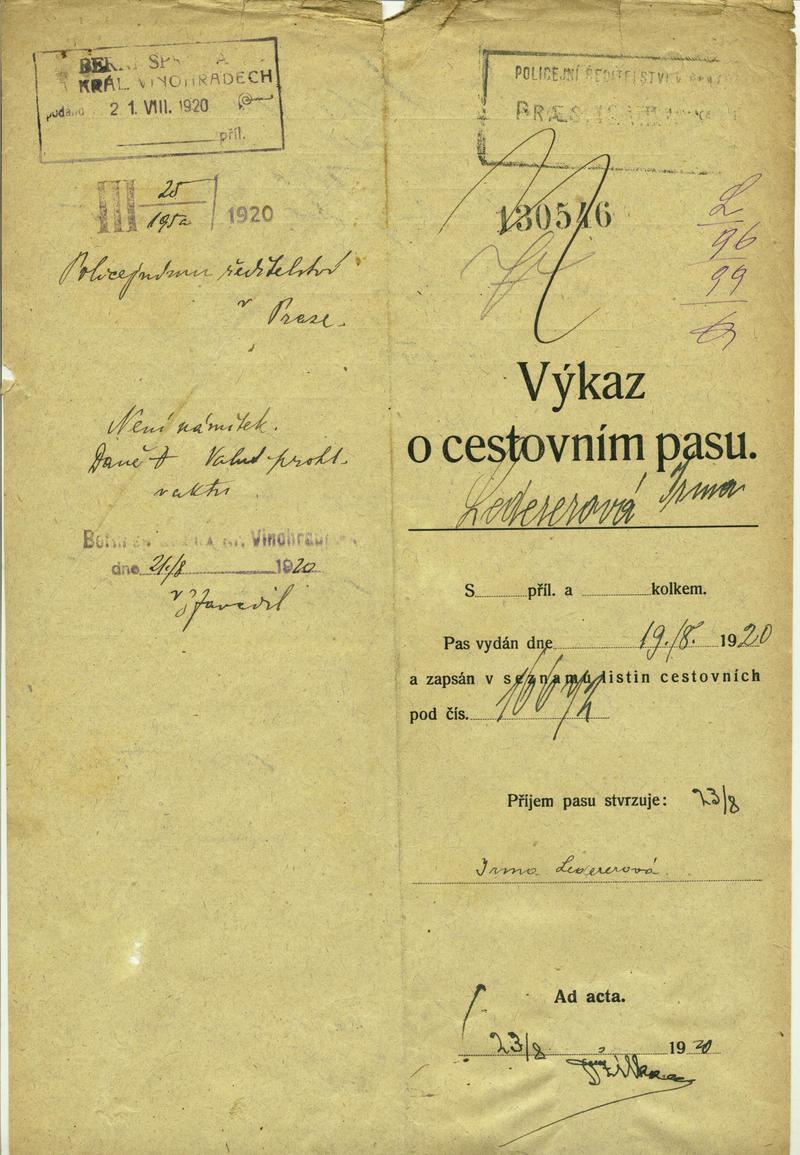 KRÁL. VINOHRADECH
podáno 21. VIII. 1920
příl.
III 25/1952 1920
Policejnímu ředitelství
v Praze.
Není námitek.
Daně
Vinohrad
dne 21/8 1920
POLICEJNÍ ŘEDITELSTVÍ V
PRAES
130546
L
96
99
Výkaz
o cestovním pasu.
Ledererová Irma
S příl. a kolkem.
Pas vydán dne 19./8. 1920
a zapsán v seznamu listin cestovních
pod čís.
Příjem pasu stvrzuje: 23/8
Irma Ledererová
Ad acta.
23/8 1920